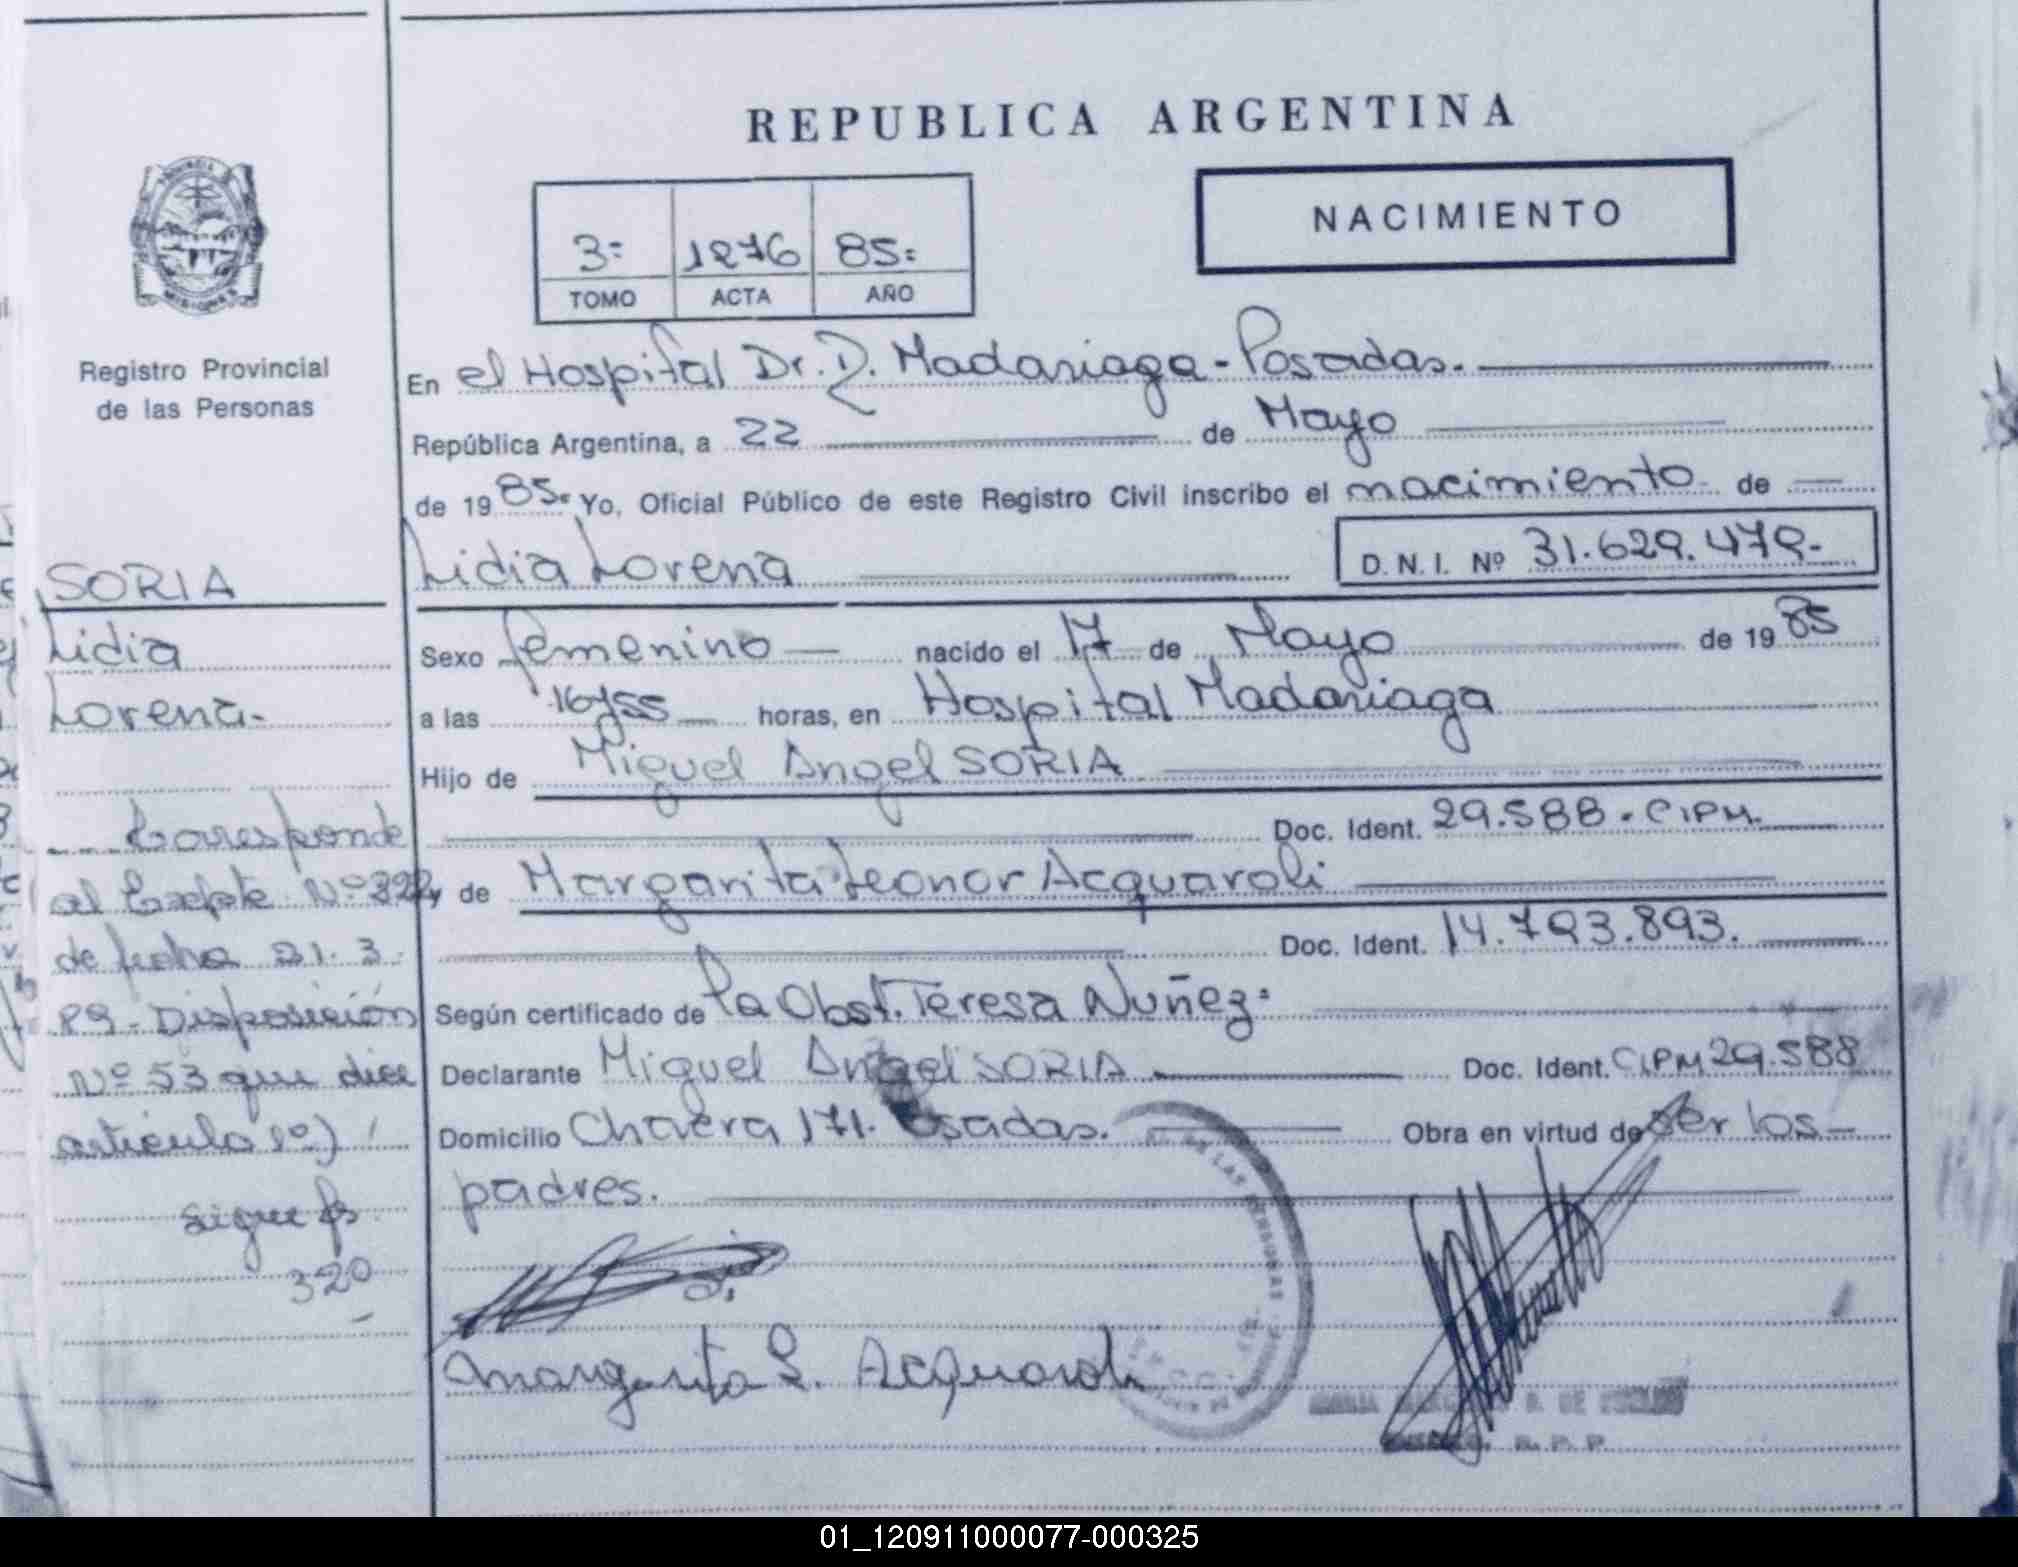 REPUBLICA ARGENTINA
NACIMIENTO
3= 1276 85=
TOMO ACTA AÑO
Registro Provincial
de las Personas
En el Hospital Dr. R. Madariaga - Posadas.
República Argentina, a 22 de Mayo
de 1985. Yo, Oficial Público de este Registro Civil inscribo el nacimiento de
Lidia Lorena
D. N. I. Nº 31.629.479.-
SORIA
Lidia
Lorena.-
Sexo femenino nacido el 17 de Mayo de 1985
a las 16y55 horas, en Hospital Madariaga
Hijo de Miguel Angel SORIA
Doc. Ident. 29.588 - CIPM.
y de Margarita Leonor Acquaroli
Doc. Ident. 14.793.893.
Según certificado de la Obst. Teresa Nuñez=
Declarante Miguel Angel SORIA Doc. Ident. CIPM 29.588
Domicilio Chavera 171. Posadas. Obra en virtud de ser los
padres.
Corresponde
al Expte Nº 322
de fecha 21.3.
89 - Disposición
Nº 53 que dice
artículo 1º)
sigue fs
320
Margarita L. Acquaroli
DE LAS PERSONAS
R. P. P
01_120911000077-000325